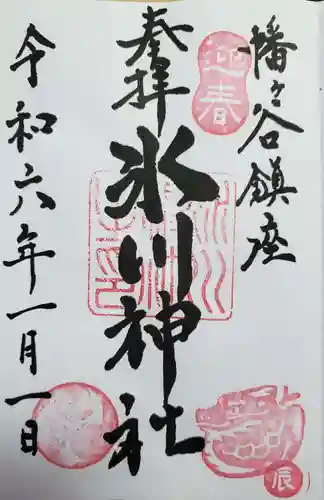 幡ヶ谷鎮座
迎春
奉拝
氷川神社
辰
令和六年一月一日